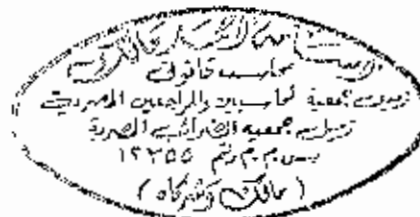 محاسب قانونى
زميل جمعية المحاسبين والمراجعين المصرية
زميل جمعية الضرائب المصرية
س.م.م رقم ١٢٣٥٥
( مالك وشركاه )